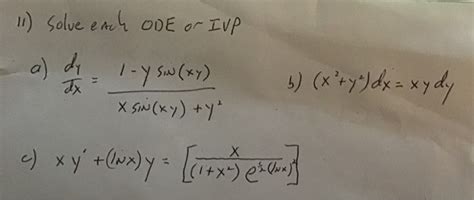 11) Solve each ODE or IVP
a) dy/dx = (1 - y sin(xy)) / (x sin(xy) + y²)
b) (x²+y²)dx = xy dy
c) xy' + (lnx)y = [x / ((1+x²) e^(½(lnx)²))]